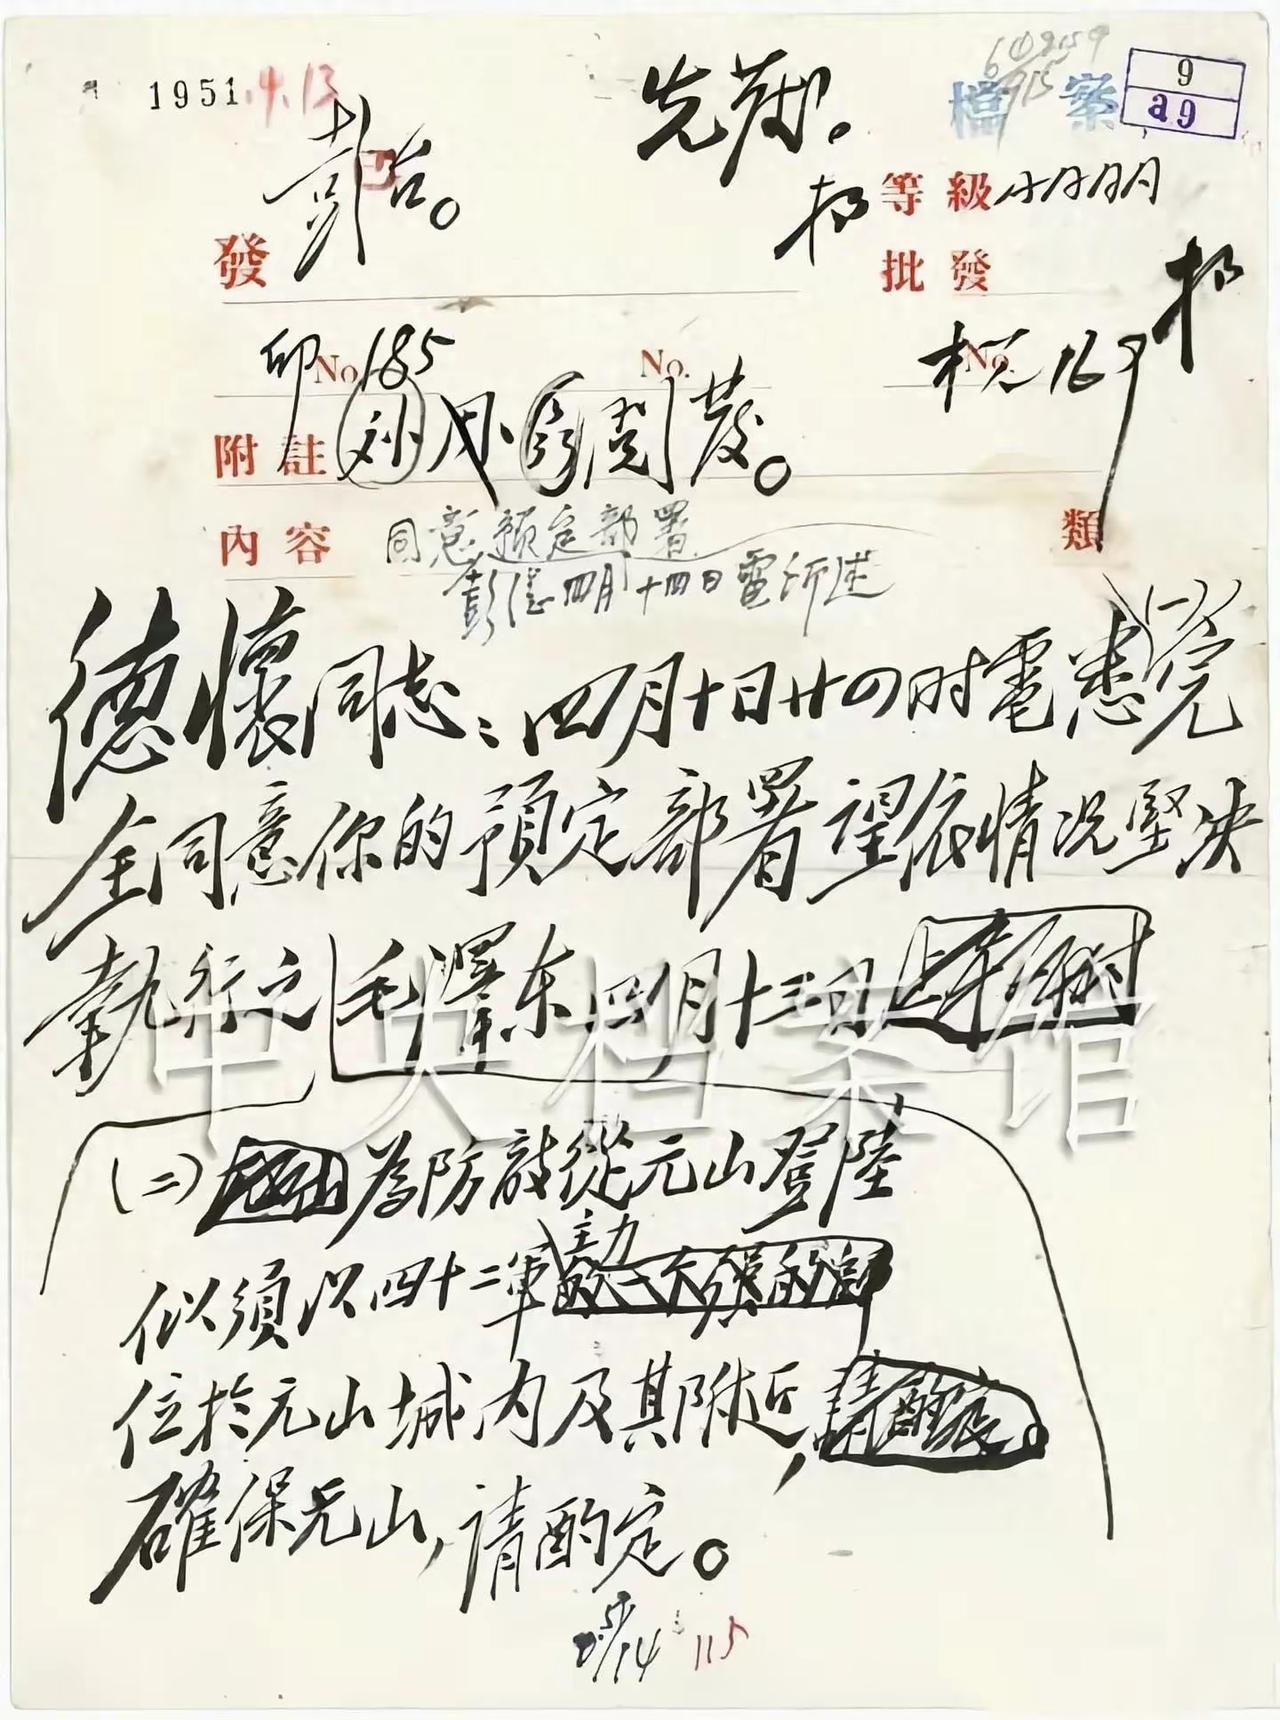 1951.4.13
檔案
9
a9
彭
發
等級
批發
No 185
No.
No
附註
刘 周 閱 發。
內容
類
同意預定部署
彭德四月十四日電所述
德懷同志：四月十日廿四时電悉（一）完
全同意你的預定部署望依情况堅决
執行之
毛澤东 四月十三日
中央档案馆
（二）為防敵從元山登陸
似須以四十二軍主力
位於元山城内及其附近，
確保元山，請酌定。
115